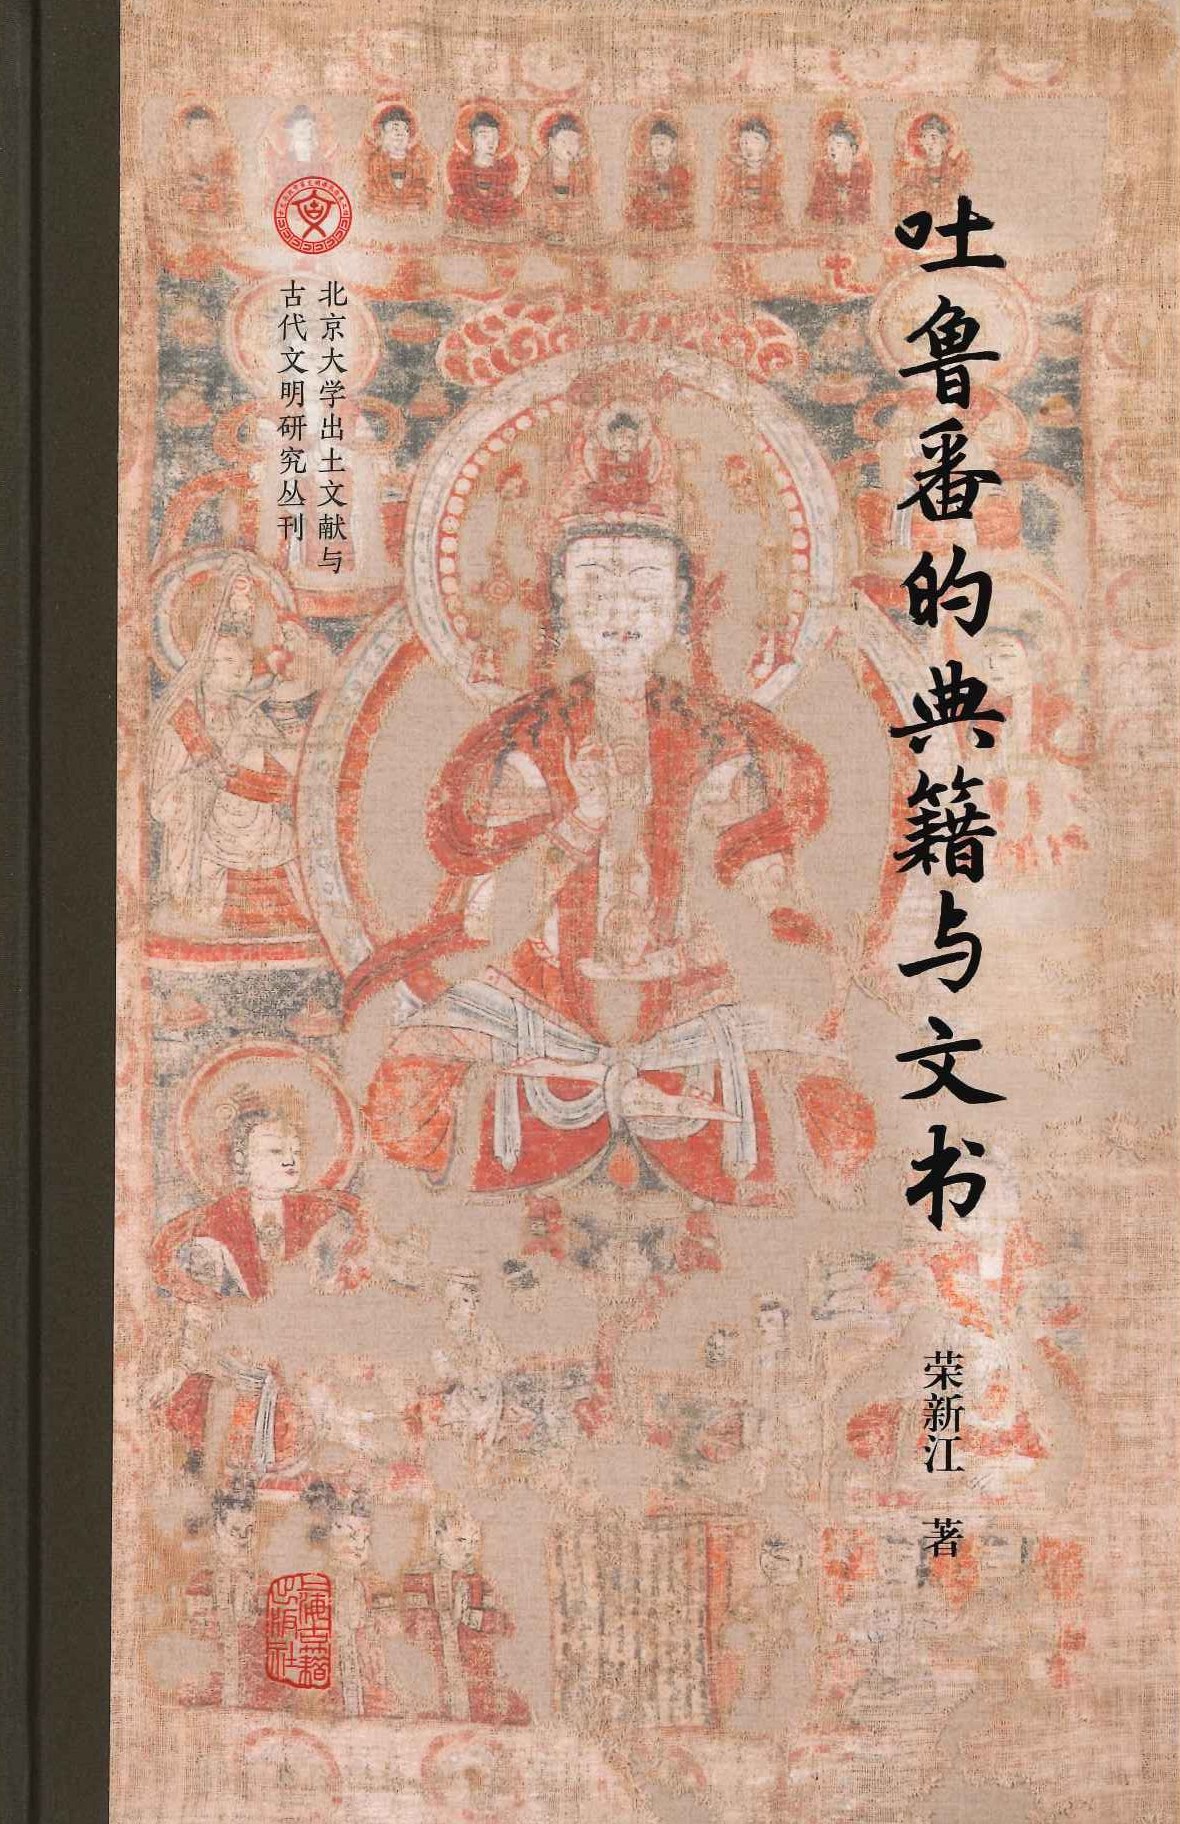 吐鲁番的典籍与文书
荣新江 著
北京大学出土文献与
古代文明研究丛刊
上海古籍
出版社